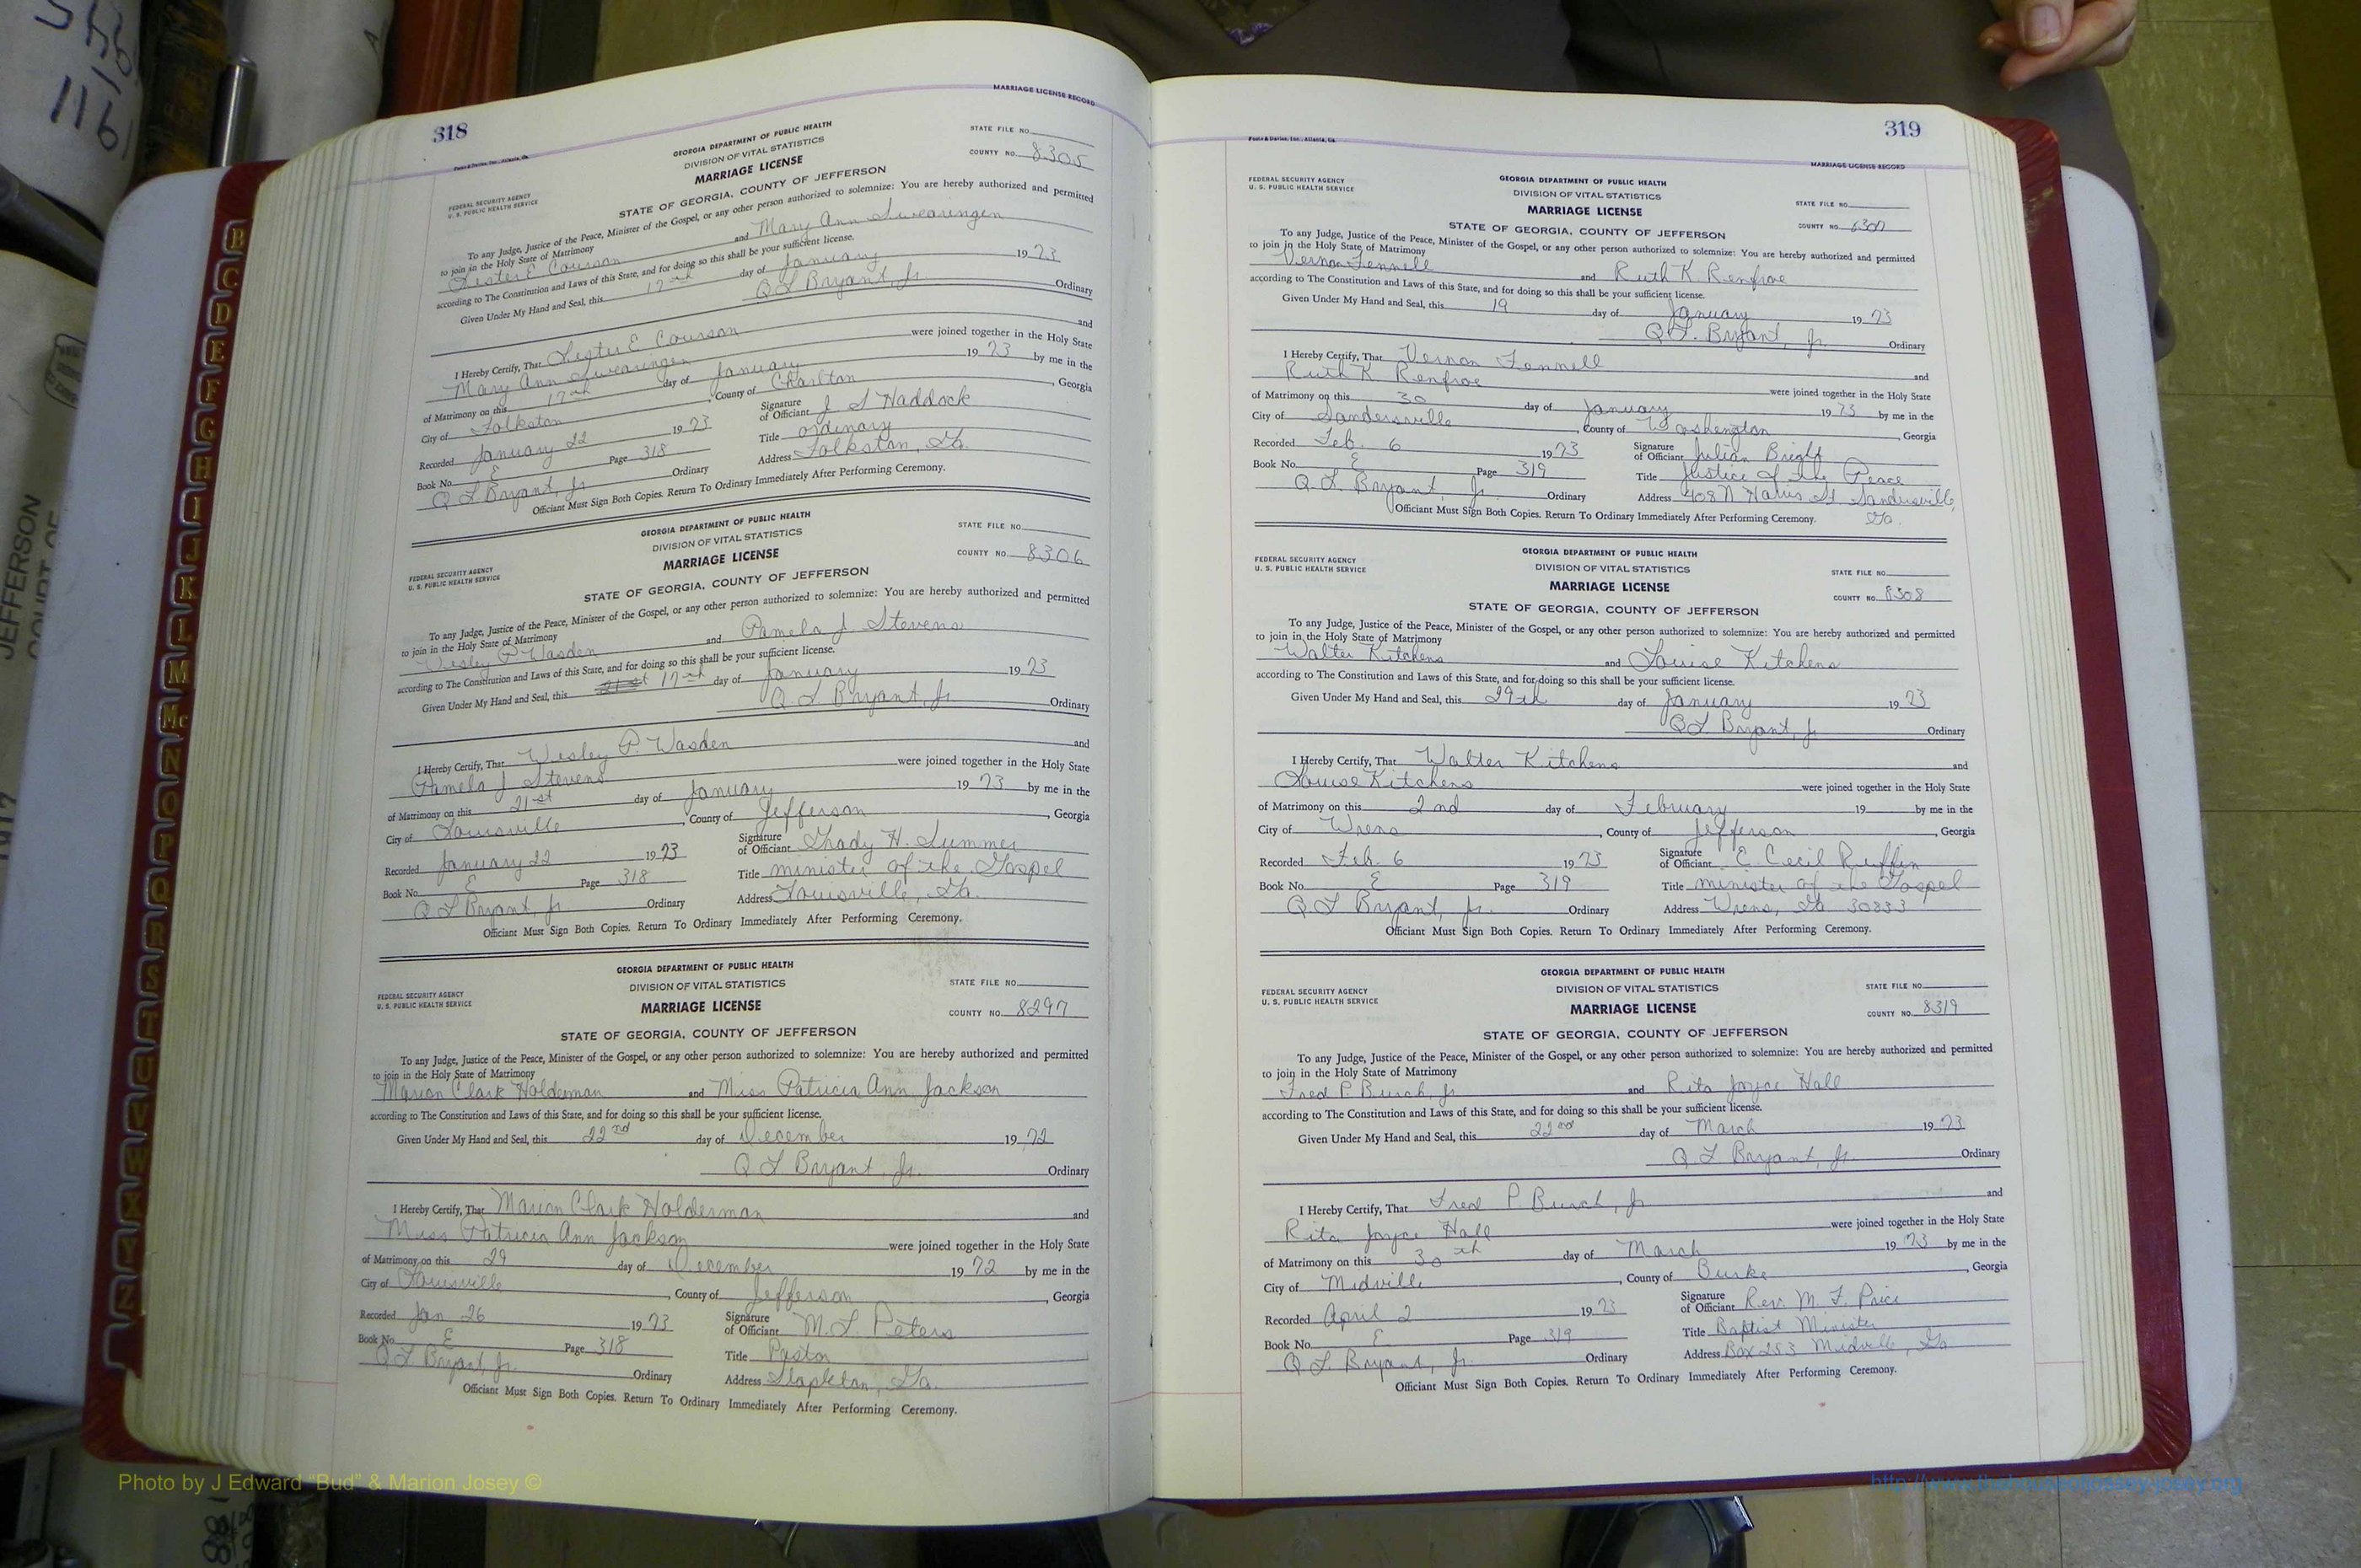 318
MARRIAGE LICENSE RECORD
GEORGIA DEPARTMENT OF PUBLIC HEALTH
DIVISION OF VITAL STATISTICS
MARRIAGE LICENSE
STATE OF GEORGIA, COUNTY OF JEFFERSON
STATE FILE NO.
COUNTY NO. 8305
FEDERAL SECURITY AGENCY
U. S. PUBLIC HEALTH SERVICE
To any Judge, Justice of the Peace, Minister of the Gospel, or any other person authorized to solemnize: You are hereby authorized and permitted
to join in the Holy State of Matrimony
Lester E Courson and Mary Ann Swearingen
according to The Constitution and Laws of this State, and for doing so this shall be your sufficient license.
Given Under My Hand and Seal, this 17th day of January 1973
Q L Bryant, Jr. Ordinary
I Hereby Certify, That Lester E Courson and
Mary Ann Swearingen were joined together in the Holy State
of Matrimony on this 17th day of January 1973 by me in the
City of Folkston, County of Charlton, Georgia
Recorded January 22 1973 Signature of Officiant J S Haddock
Book No. E Page 318 Title ordinary
Q L Bryant, Jr. Ordinary Address Folkston, Ga.
Officiant Must Sign Both Copies. Return To Ordinary Immediately After Performing Ceremony.
GEORGIA DEPARTMENT OF PUBLIC HEALTH
DIVISION OF VITAL STATISTICS
MARRIAGE LICENSE
STATE OF GEORGIA, COUNTY OF JEFFERSON
STATE FILE NO.
COUNTY NO. 8306
FEDERAL SECURITY AGENCY
U. S. PUBLIC HEALTH SERVICE
To any Judge, Justice of the Peace, Minister of the Gospel, or any other person authorized to solemnize: You are hereby authorized and permitted
to join in the Holy State of Matrimony
Wesley P Wasden and Pamela J Stevens
according to The Constitution and Laws of this State, and for doing so this shall be your sufficient license.
Given Under My Hand and Seal, this 17th day of January 1973
Q. L Bryant, Jr. Ordinary
I Hereby Certify, That Wesley P. Wasden and
Pamela J Stevens were joined together in the Holy State
of Matrimony on this 21st day of January 1973 by me in the
City of Louisville, County of Jefferson, Georgia
Recorded January 22 1973 Signature of Officiant Grady H. Summer
Book No. E Page 318 Title minister of the Gospel
Q L Bryant, Jr. Ordinary Address Louisville, Ga.
Officiant Must Sign Both Copies. Return To Ordinary Immediately After Performing Ceremony.
GEORGIA DEPARTMENT OF PUBLIC HEALTH
DIVISION OF VITAL STATISTICS
MARRIAGE LICENSE
STATE OF GEORGIA, COUNTY OF JEFFERSON
STATE FILE NO.
COUNTY NO. 8297
FEDERAL SECURITY AGENCY
U. S. PUBLIC HEALTH SERVICE
To any Judge, Justice of the Peace, Minister of the Gospel, or any other person authorized to solemnize: You are hereby authorized and permitted
to join in the Holy State of Matrimony
Marion Clark Holderman and Miss Patricia Ann Jackson
according to The Constitution and Laws of this State, and for doing so this shall be your sufficient license.
Given Under My Hand and Seal, this 22nd day of December 1972
Q L Bryant, Jr. Ordinary
I Hereby Certify, That Marion Clark Holderman and
Miss Patricia Ann Jackson were joined together in the Holy State
of Matrimony on this 29 day of December 1972 by me in the
City of Louisville, County of Jefferson, Georgia
Recorded Jan 26 1973 Signature of Officiant M. L. Peters
Book No. E Page 318 Title Pastor
Q L Bryant, Jr. Ordinary Address Stapleton, Ga.
Officiant Must Sign Both Copies. Return To Ordinary Immediately After Performing Ceremony.
319
MARRIAGE LICENSE RECORD
FEDERAL SECURITY AGENCY
U. S. PUBLIC HEALTH SERVICE
GEORGIA DEPARTMENT OF PUBLIC HEALTH
DIVISION OF VITAL STATISTICS
MARRIAGE LICENSE
STATE OF GEORGIA, COUNTY OF JEFFERSON
STATE FILE NO.
COUNTY NO.
To any Judge, Justice of the Peace, Minister of the Gospel, or any other person authorized to solemnize: You are hereby authorized and permitted
to join in the Holy State of Matrimony
Vernon Fennell and Ruth K. Renfroe
according to The Constitution and Laws of this State, and for doing so this shall be your sufficient license.
Given Under My Hand and Seal, this 19 day of January 1973
Q. L. Bryant, Jr. Ordinary
I Hereby Certify, That Vernon Fennell and
Ruth K Renfroe were joined together in the Holy State
of Matrimony on this 30 day of January 1973 by me in the
City of Sandersville, County of Washington, Georgia
Recorded Feb. 6 1973 Signature of Officiant Julian Bright
Book No. E Page 319 Title Justice of the Peace
Q. L. Bryant, Jr. Ordinary Address 408 N Harris St Sandersville,
Ga.
Officiant Must Sign Both Copies. Return To Ordinary Immediately After Performing Ceremony.
GEORGIA DEPARTMENT OF PUBLIC HEALTH
DIVISION OF VITAL STATISTICS
MARRIAGE LICENSE
STATE OF GEORGIA, COUNTY OF JEFFERSON
STATE FILE NO.
COUNTY NO. 8308
FEDERAL SECURITY AGENCY
U. S. PUBLIC HEALTH SERVICE
To any Judge, Justice of the Peace, Minister of the Gospel, or any other person authorized to solemnize: You are hereby authorized and permitted
to join in the Holy State of Matrimony
Walter Kitchens and Louise Kitchens
according to The Constitution and Laws of this State, and for doing so this shall be your sufficient license.
Given Under My Hand and Seal, this 29th day of January 1973
Q L Bryant, Jr Ordinary
I Hereby Certify, That Walter Kitchens and
Louise Kitchens were joined together in the Holy State
of Matrimony on this 2nd day of February 19 by me in the
City of Wrens, County of Jefferson, Georgia
Recorded Feb. 6 1973 Signature of Officiant E. Cecil Ruffin
Book No. E Page 319 Title minister of the Gospel
Q L Bryant, Jr. Ordinary Address Wrens, Ga 30833
Officiant Must Sign Both Copies. Return To Ordinary Immediately After Performing Ceremony.
GEORGIA DEPARTMENT OF PUBLIC HEALTH
DIVISION OF VITAL STATISTICS
MARRIAGE LICENSE
STATE OF GEORGIA, COUNTY OF JEFFERSON
STATE FILE NO.
COUNTY NO. 8319
FEDERAL SECURITY AGENCY
U. S. PUBLIC HEALTH SERVICE
To any Judge, Justice of the Peace, Minister of the Gospel, or any other person authorized to solemnize: You are hereby authorized and permitted
to join in the Holy State of Matrimony
Fred P. Burch, Jr and Rita Joyce Hall
according to The Constitution and Laws of this State, and for doing so this shall be your sufficient license.
Given Under My Hand and Seal, this 22nd day of March 1973
Q L Bryant, Jr. Ordinary
I Hereby Certify, That Fred P Burch, Jr and
Rita Joyce Hall were joined together in the Holy State
of Matrimony on this 30th day of March 1973 by me in the
City of Midville, County of Burke, Georgia
Recorded April 2 1973 Signature of Officiant Rev. M. F. Price
Book No. E Page 319 Title Baptist Minister
Q L Bryant, Jr. Ordinary Address Box 253 Midville, Ga
Officiant Must Sign Both Copies. Return To Ordinary Immediately After Performing Ceremony.
B
C
D
E
F
G
H
I
J
K
L
M
Mc
N
O
P
Q
R
S
T
U
V
W
X
Y
Z
JEFFERSON
COURT OF
Photo by J Edward "Bud" & Marion Josey ©